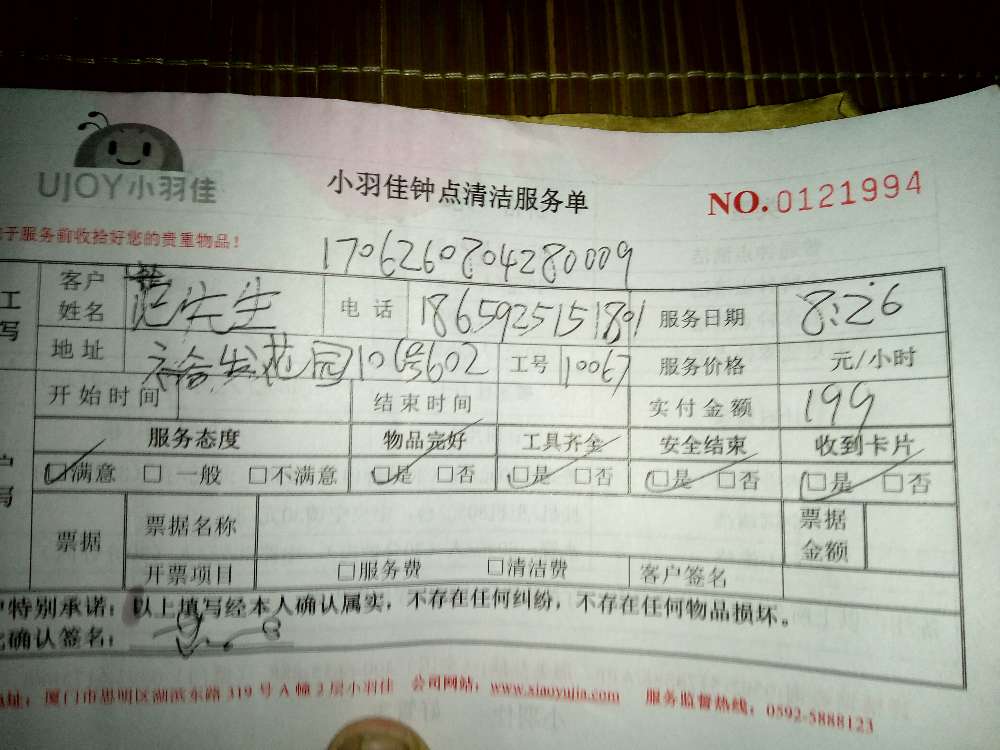 UJOY小羽佳
小羽佳钟点清洁服务单
NO.0121994
于服务前收拾好您的贵重物品！
1706260804280009
客户姓名 范先生 电话 18659251518901 服务日期 8:26
地址 裕发花园106号602 工号 10067 服务价格 元/小时
开始时间 结束时间 实付金额 199
服务态度 物品完好 工具齐全 安全结束 收到卡片
□满意 □一般 □不满意 □是 □否 □是 □否 □是 □否 □是 □否
票据 票据名称 票据金额
开票项目 □服务费 □清洁费 客户签名
特别承诺：以上填写经本人确认属实，不存在任何纠纷，不存在任何物品损坏。
确认签名：
地址：厦门市思明区湖滨东路319号A幢2层小羽佳 公司网站：www.xiaoyujia.com 服务监督热线：0592-5888123